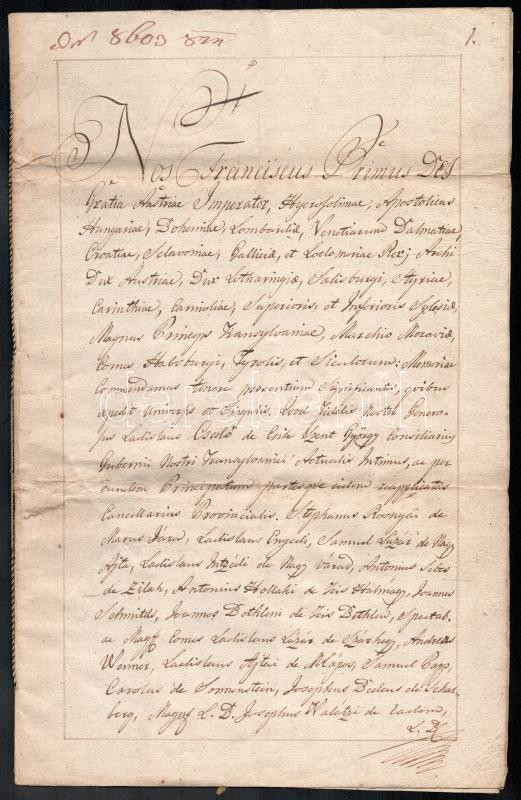 8603 827
1.
Nos Franciscus Primus Dei
Gratia Austriae Imperator, Hyerosolimae, Apostolicus
Hungariae, Bohemiae, Lombardiae, Venetiarum Dalmatiae,
Croatiae, Sclavoniae, Galliciae, et Lodomeriae Rex; Archi
Dux Austriae, Dux Lotharingiae, Salisburgi, Styriae,
Carinthiae, Carnioliae, Superioris, et Inferioris Sylesiae,
Magnus Princeps Transylvaniae, Marchio Moraviae,
Comes Habsburgi, Tyrolis, et Siculorum: Memoriae
Commendamus tenore praesentium significantes, quibus
expedit Universis et Singulis. Quod Fidelis Noster Genero-
sus Ladislaus Cserei de Csik Szent György Consiliarius
Gubernii Nostri Transylvanici Actualis Intimus, ac per
eundem Principatum partesque eidem reapplicatas
Cancellarius Provincialis. Stephanus Rosnyai de
Maros Jára, Ladislaus Enyedi, Samuel Lázár de Nagy
Ajta, Ladislaus Intzédi de Nagy Várad, Antonius Sebes
de Zilah, Antonius Hollaki de Kis Halmagy, Joannes
Schmidts, Joannes Bethlen de Kis Bethlen, Spectab.
ac Magf Comes Ladislaus Lázár de Szárhegy, Andreas
Wenner, Ladislaus Ajtai de Mlápos, Samuel Papp,
Carolus de Sonnenstein, Josephus Bedeus de Schar-
berg, Magf L. B. Josephus Naláczi de eadem,
L. B.
darabanth